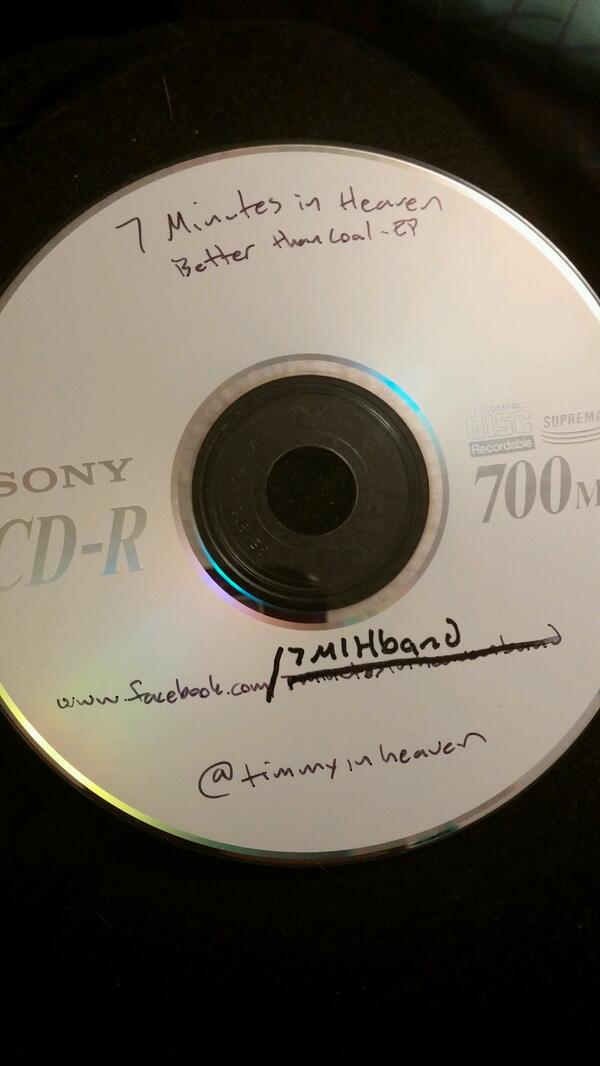 7 Minutes in Heaven
Better than Coal - EP
COMPACT
disc
Recordable
SUPREMA
SONY
700M
CD-R
/7MIHband
www.facebook.com
@timmyinheaven